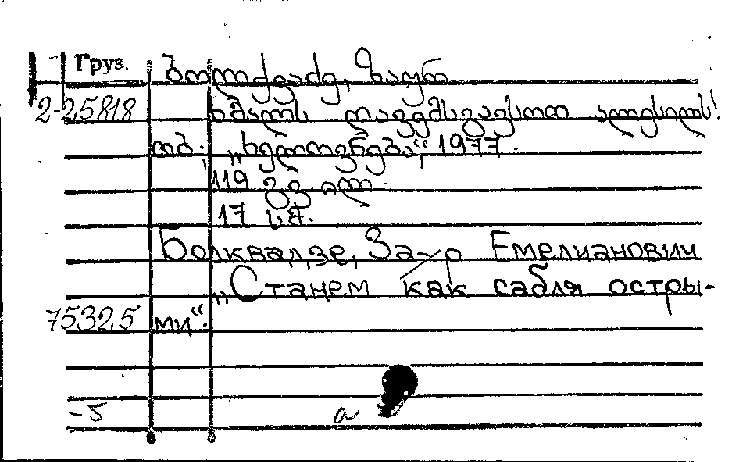 Груз. ბოლქვაძე, ზაურ
2-25818 ხმალს დავემსგავსოთ ალესილს!
თბ. „ხელოვნება“, 1977.
119 გვ. ილ.
17 სმ.
Болквадзе, Заур Емелианович
„Станем как сабля остры-
75325 ми“.
-5